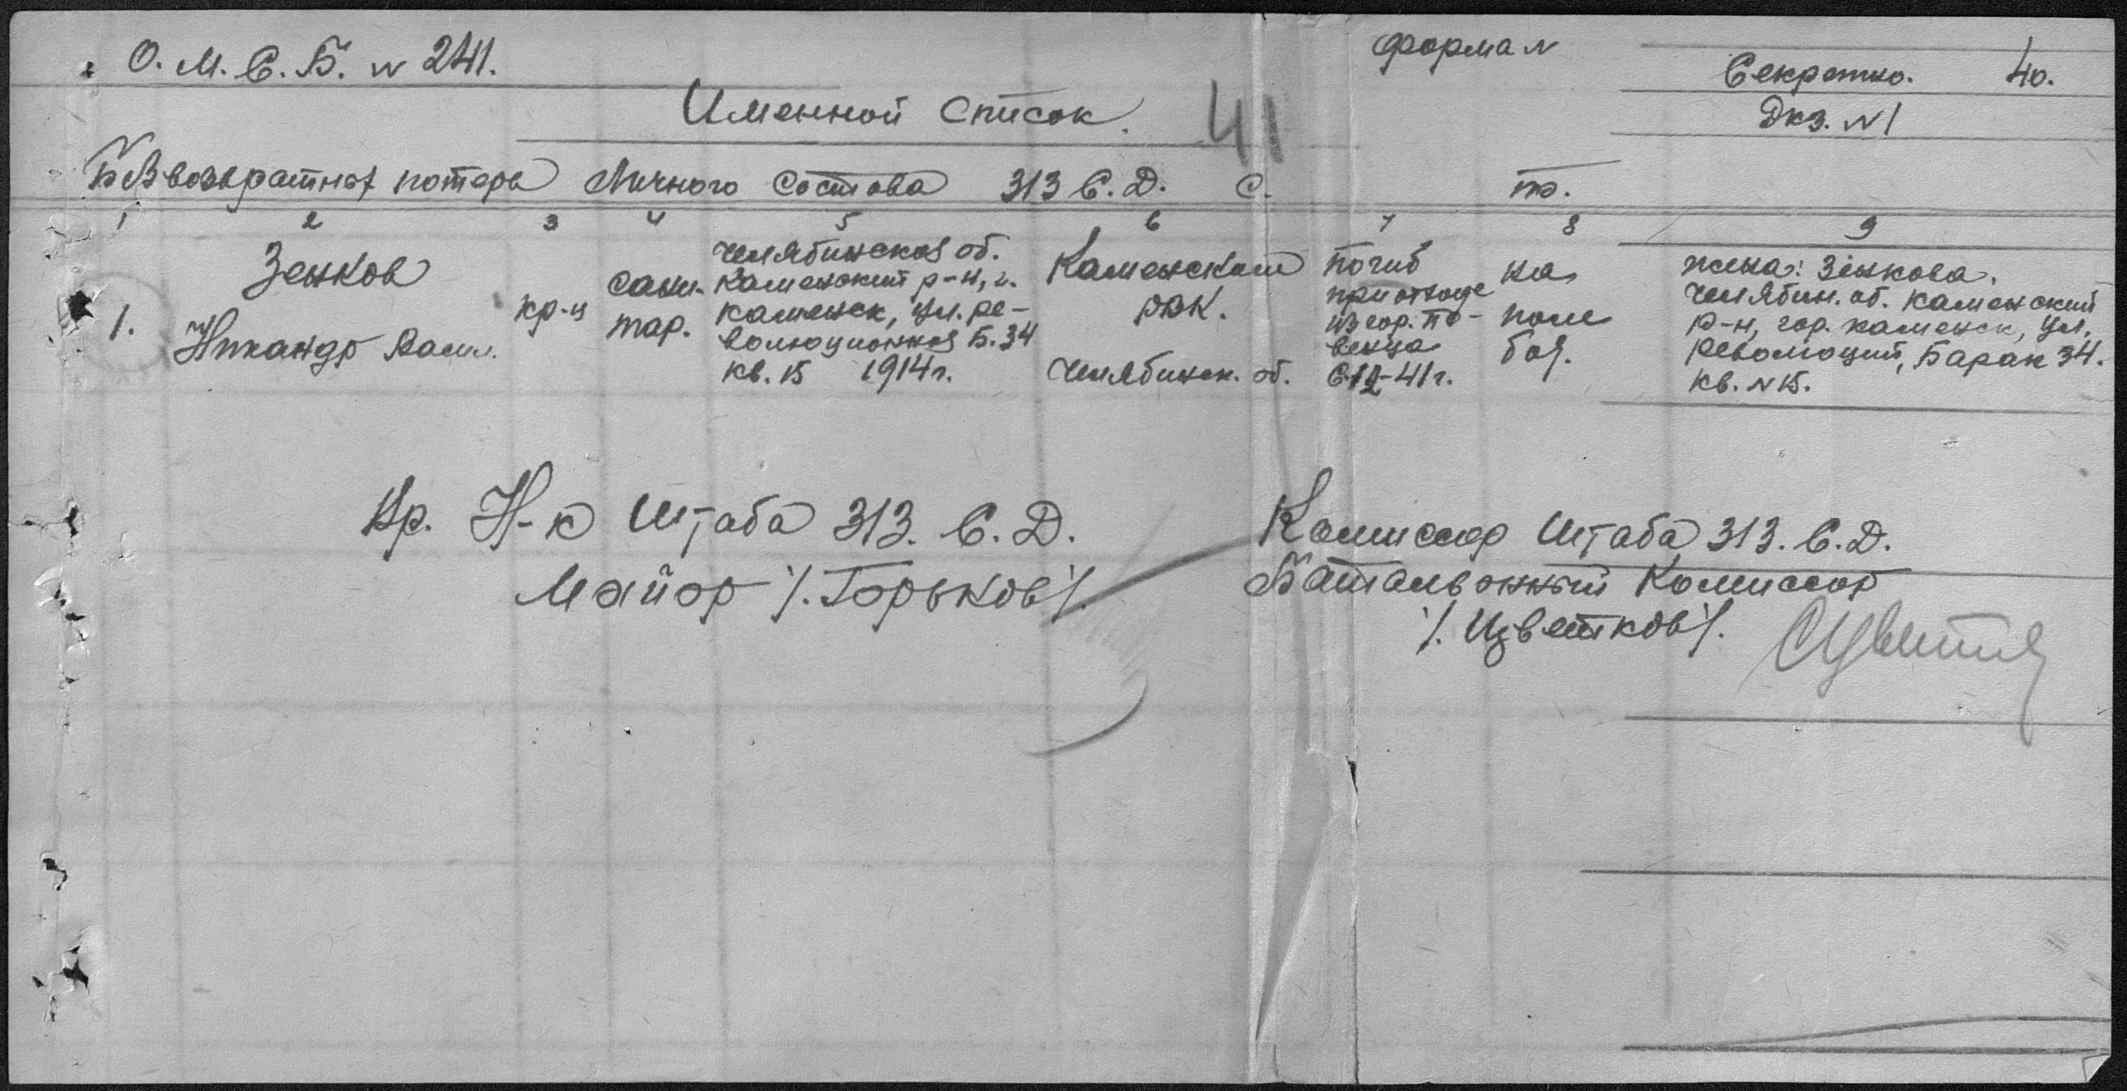 О. М. С. Б. № 241.
форма №
Секретно. 40.
Экз. №1
Именной список. 41
Безвозвратных потерь личного состава 313 С. Д. С. по.
1 2 3 4 5 6 7 8 9
1. Зенков
Никандр Васил.
кр-ц
сани-
тар.
Челябинская об.
Каменский р-н, г.
Каменск, ул. ре-
волюционная Б. 34
кв. 15 1914 г.
Каменским
РВК.
Челябинск. об.
Погиб
при отходе
из гор. По-
венца
6-12-41 г.
на
поле
боя.
жена: Зенкова.
Челябин. об. Каменский
р-н, гор. Каменск, ул.
Революции, Барак 34.
кв. №15.
Вр. Н-к Штаба 313. С. Д.
Майор /. Горьков /.
Комиссар Штаба 313. С. Д.
Батальонный Комиссар
/. Цветков /.